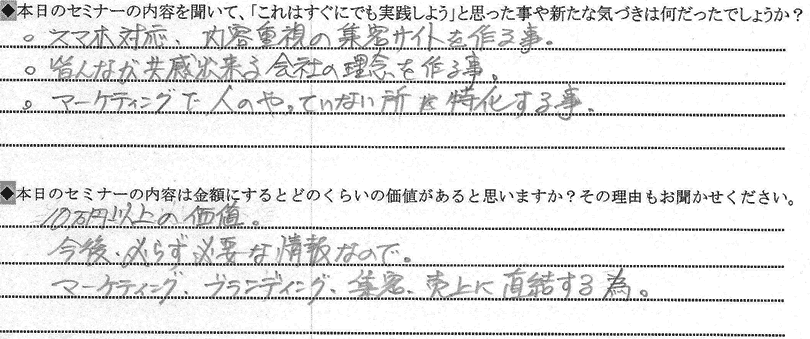 ◆本日のセミナーの内容を聞いて、「これはすぐにでも実践しよう」と思った事や新たな気づきは何だったでしょうか？
○ スマホ対応、内容重視の集客サイトを作る事。
○ 皆んなが共感出来る会社の理念を作る事。
○ マーケティングで人のやっていない所に特化する事。
◆本日のセミナーの内容は金額にするとどのくらいの価値があると思いますか？その理由もお聞かせください。
10万円以上の価値。
今後、必らず必要な情報なので。
マーケティング、ブランディング、集客、売上に直結する為。